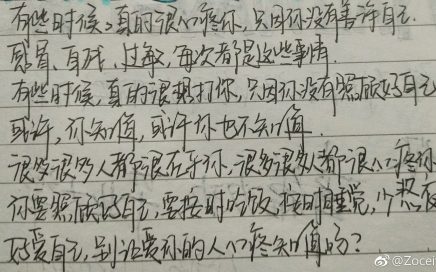 有些时候，真的很心疼你，只因你没有善待自己.
感冒、自残、过敏，每次都是这些事情.
有些时候，真的很想打你，只因你没有照顾好自己
或许，你知道，或许你也不知道.
很多很多人都很在乎你，很多很多人都很心疼你
你要照顾好自己，要按时吃饭，按时睡觉，少熬夜
好爱自己，别让爱你的人心疼知道吗？
@Zocei